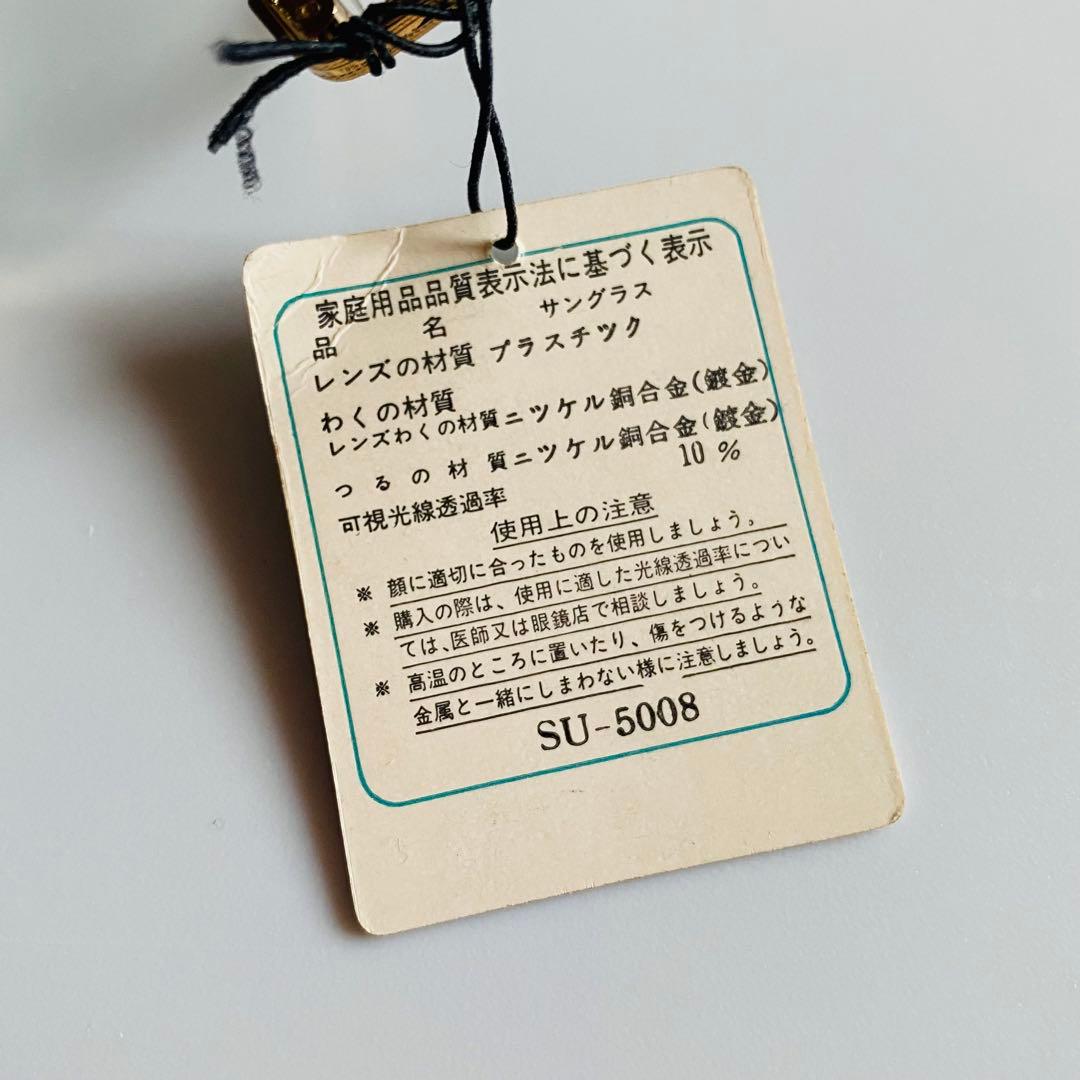 家庭用品品質表示法に基づく表示
品名 サングラス
レンズの材質 プラスチツク
わくの材質
レンズわくの材質 ニツケル銅合金(鍍金)
つるの材質 ニツケル銅合金(鍍金)
可視光線透過率 10%
使用上の注意
※ 顔に適切に合ったものを使用しましょう。
※ 購入の際は、使用に適した光線透過率につい
ては、医師又は眼鏡店で相談しましょう。
※ 高温のところに置いたり、傷をつけるような
金属と一緒にしまわない様に注意しましょう。
SU-5008